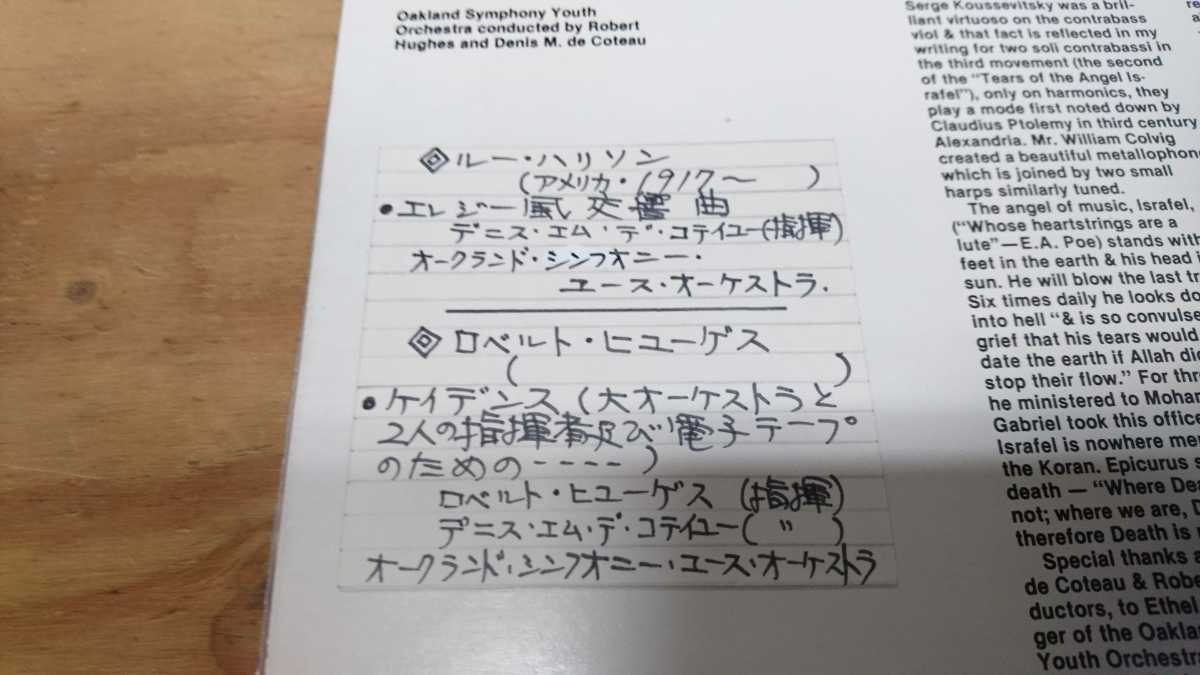 Oakland Symphony Youth
Orchestra conducted by Robert
Hughes and Denis M. de Coteau
◈ ルー・ハリソン
(アメリカ・1917〜 )
• エレジー風交響曲
デニス・エム・デ・コテイユー(指揮)
オークランド・シンフオニー・
ユース・オーケストラ.
◈ ロベルト・ヒューゲス
( )
• ケイデンス(大オーケストラと
2人の指揮者及び電子テープ
のための----)
ロベルト・ヒューゲス (指揮)
デニス・エム・デ・コテイユー( 〃 )
オークランド・シンフオニー・ユース・オーケストラ
Serge Koussevitsky was a bril-
liant virtuoso on the contrabass
viol & that fact is reflected in my
writing for two soli contrabassi in
the third movement (the second
of the "Tears of the Angel Is-
rafel"), only on harmonics, they
play a mode first noted down by
Claudius Ptolemy in third century
Alexandria. Mr. William Colvig
created a beautiful metallophone
which is joined by two small
harps similarly tuned.
The angel of music, Israfel,
("Whose heartstrings are a
lute"—E.A. Poe) stands with
feet in the earth & his head
sun. He will blow the last
Six times daily he looks
into hell "& is so
grief that his tears would
date the earth if Allah
stop their flow." For
he ministered to
Gabriel took this office
Israfel is nowhere
the Koran. Epicurus
death — "Where
not; where we are,
therefore Death is
Special thanks
de Coteau &
to Ethel
ger of the
Youth